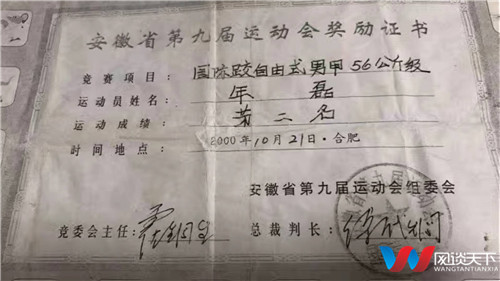 安徽省第九届运动会奖励证书
竞赛项目：国际跤自由式男甲56公斤级
运动员姓名：年磊
运动成绩：第二名
时间地点：2000年10月21日·合肥
安徽省第九届运动会组委会
竞委会主任：
总裁判长：
网谈天下
WANGTANTIANXIA